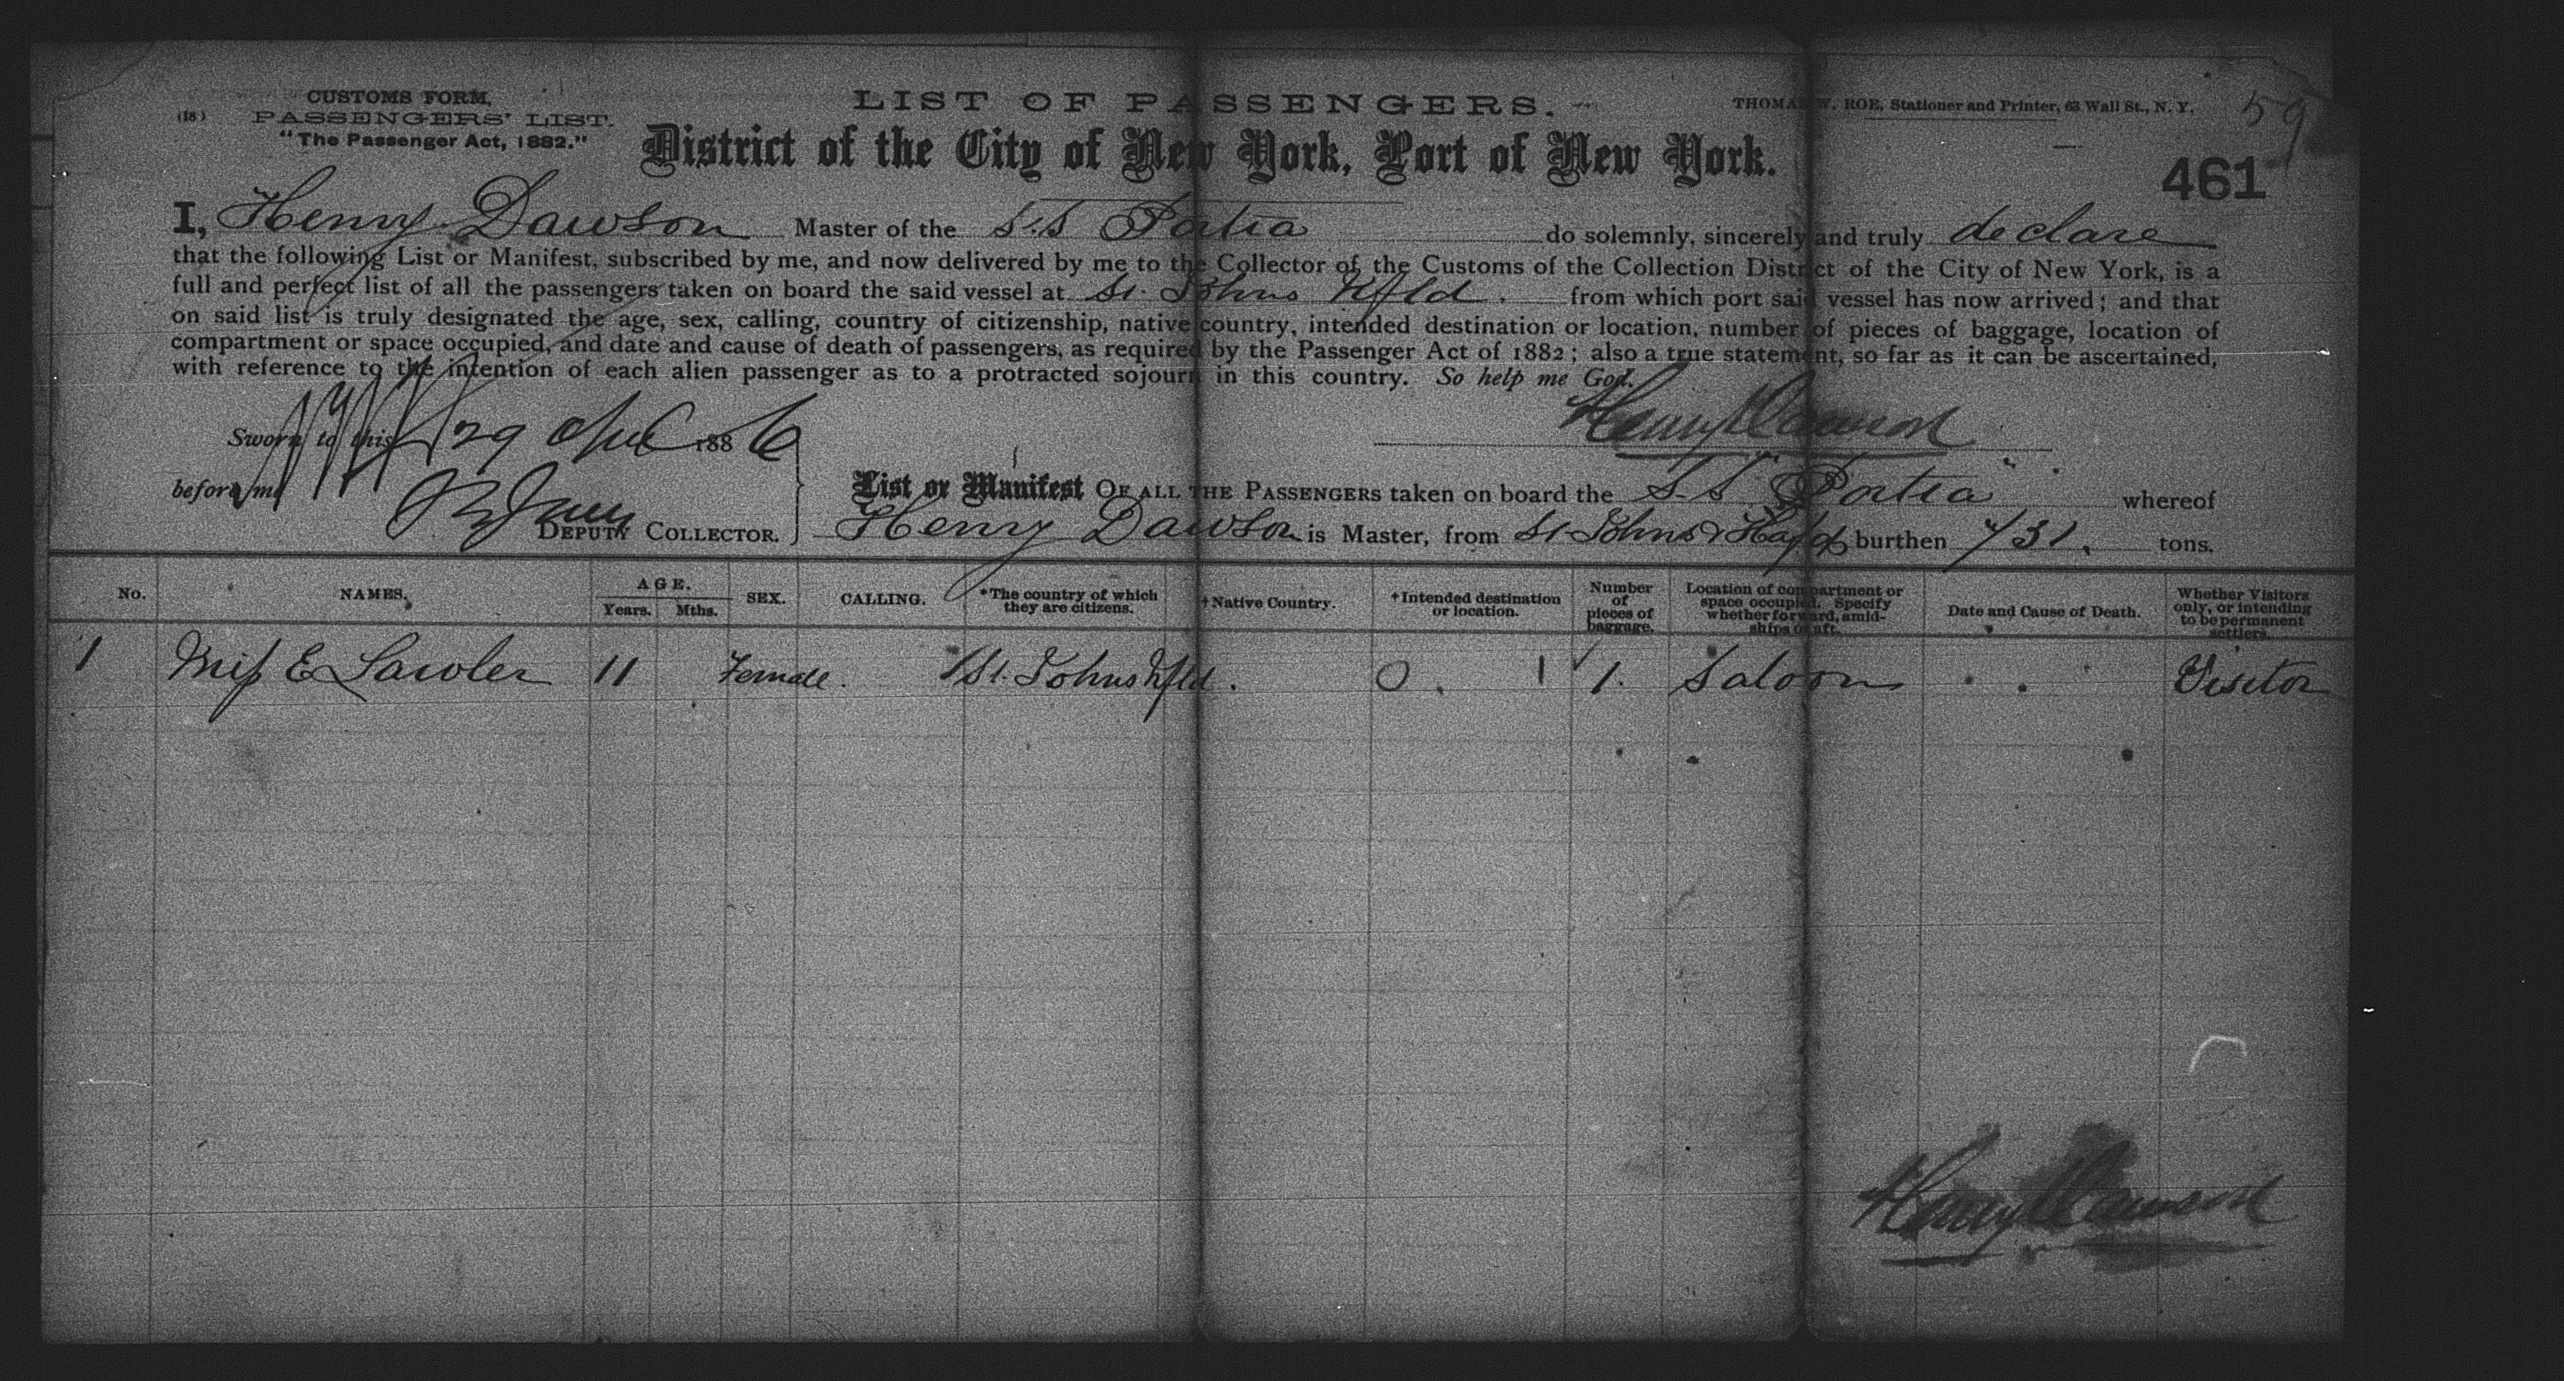 CUSTOMS FORM,
(18) PASSENGERS' LIST.
"The Passenger Act, 1882."
LIST OF PASSENGERS.
THOMAS W. ROE, Stationer and Printer, 63 Wall St., N. Y.
59
District of the City of New York, Port of New York.
461
I, Henry Dawson Master of the S.S Portia do solemnly, sincerely and truly declare
that the following List or Manifest, subscribed by me, and now delivered by me to the Collector of the Customs of the Collection District of the City of New York, is a
full and perfect list of all the passengers taken on board the said vessel at St. Johns Nfld. from which port said vessel has now arrived; and that
on said list is truly designated the age, sex, calling, country of citizenship, native country, intended destination or location, number of pieces of baggage, location of
compartment or space occupied, and date and cause of death of passengers, as required by the Passenger Act of 1882; also a true statement, so far as it can be ascertained,
with reference to the intention of each alien passenger as to a protracted sojourn in this country. So help me God.
Henry Dawson
Sworn to this 29 1886
before me
DEPUTY COLLECTOR.
List or Manifest OF ALL THE PASSENGERS taken on board the S.S "Portia" whereof
Henry Dawson is Master, from St Johns & burthen 731. tons.
No. NAMES. AGE. Years. Mths. SEX. CALLING. *The country of which they are citizens. †Native Country. †Intended destination or location. Number of pieces of baggage. Location of compartment or space occupied. Specify whether forward, amidships or aft. Date and Cause of Death. Whether Visitors only, or intending to be permanent settlers.
1 Miss E Lawler 11 Female. St. Johns Nfld. 1. Saloon Visitor
Henry Dawson